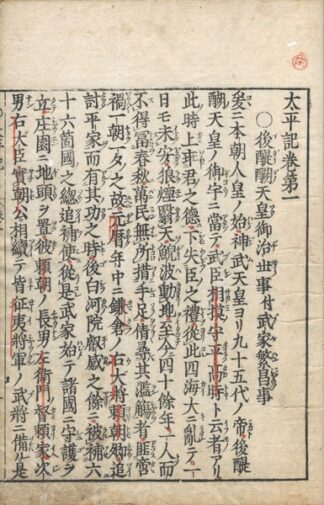 太平記巻第一
○後醍醐天皇御治世事付武家繁昌事
爰ニ本朝人皇ノ始神武天皇ヨリ九十五代ノ帝後醍
醐天皇ノ御宇ニ当テ武臣相模守平高時ト云者アリ
此時上乖君之徳下失臣之禮従此四海大ニ乱テ一
日モ未安狼煙翳天鯢波動地至今四十餘年一人而
不得冨春秋萬民無所措手足倩尋其濫觴者匪啻
禍一朝一夕之故元暦年中ニ鎌倉ノ右大将頼朝卿追
討平家而有其功之時後白河院叡感之餘ニ被補六
十六箇國之総追補使従是武家始テ諸國ニ守護ヲ
立庄園ニ地頭ヲ置彼頼朝ノ長男左衛門督頼家次
男右大臣實朝公相續テ皆征夷将軍ノ武将ニ備ル是